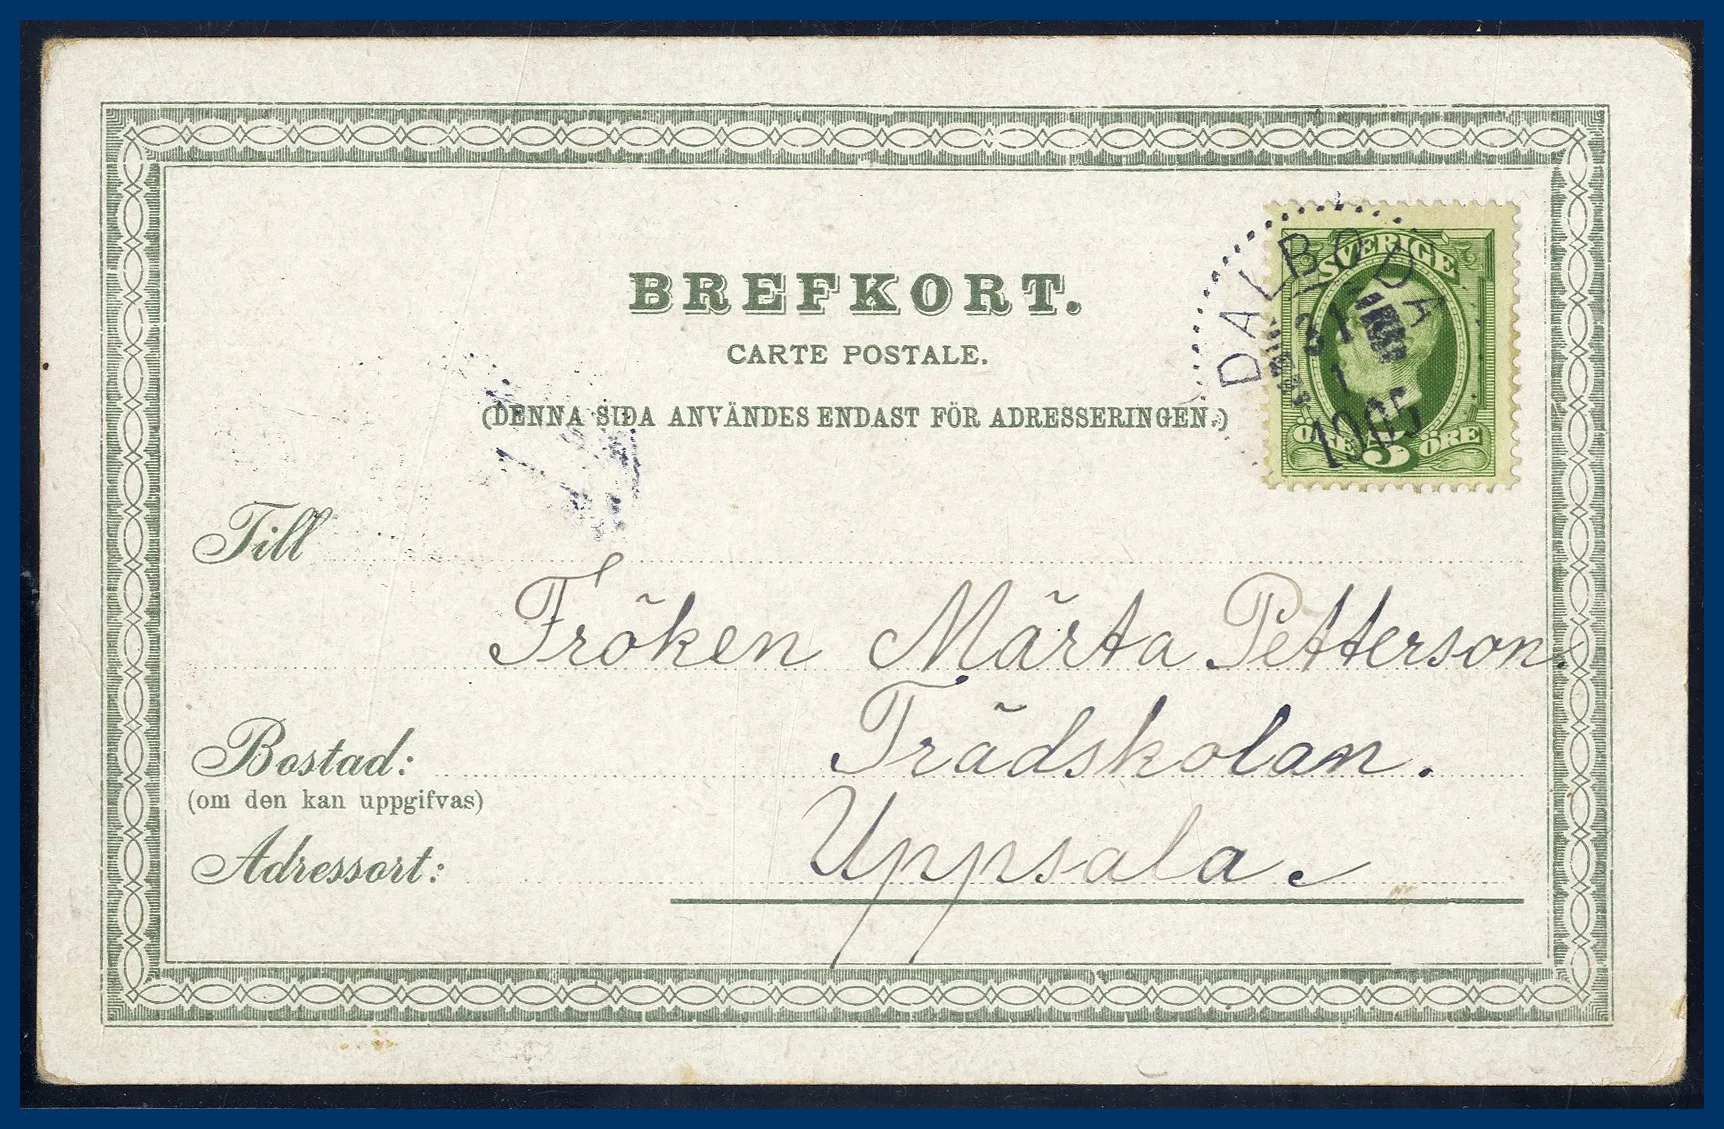 BREFKORT.
CARTE POSTALE.
(DENNA SIDA ANVÄNDES ENDAST FÖR ADRESSERINGEN.)
SVERIGE
5
ÖRE ÖRE
DALBODA
31
1
1905
Till
Fröken Märta Petterson.
Bostad: Trädskolan.
(om den kan uppgifvas)
Adressort: Uppsala.